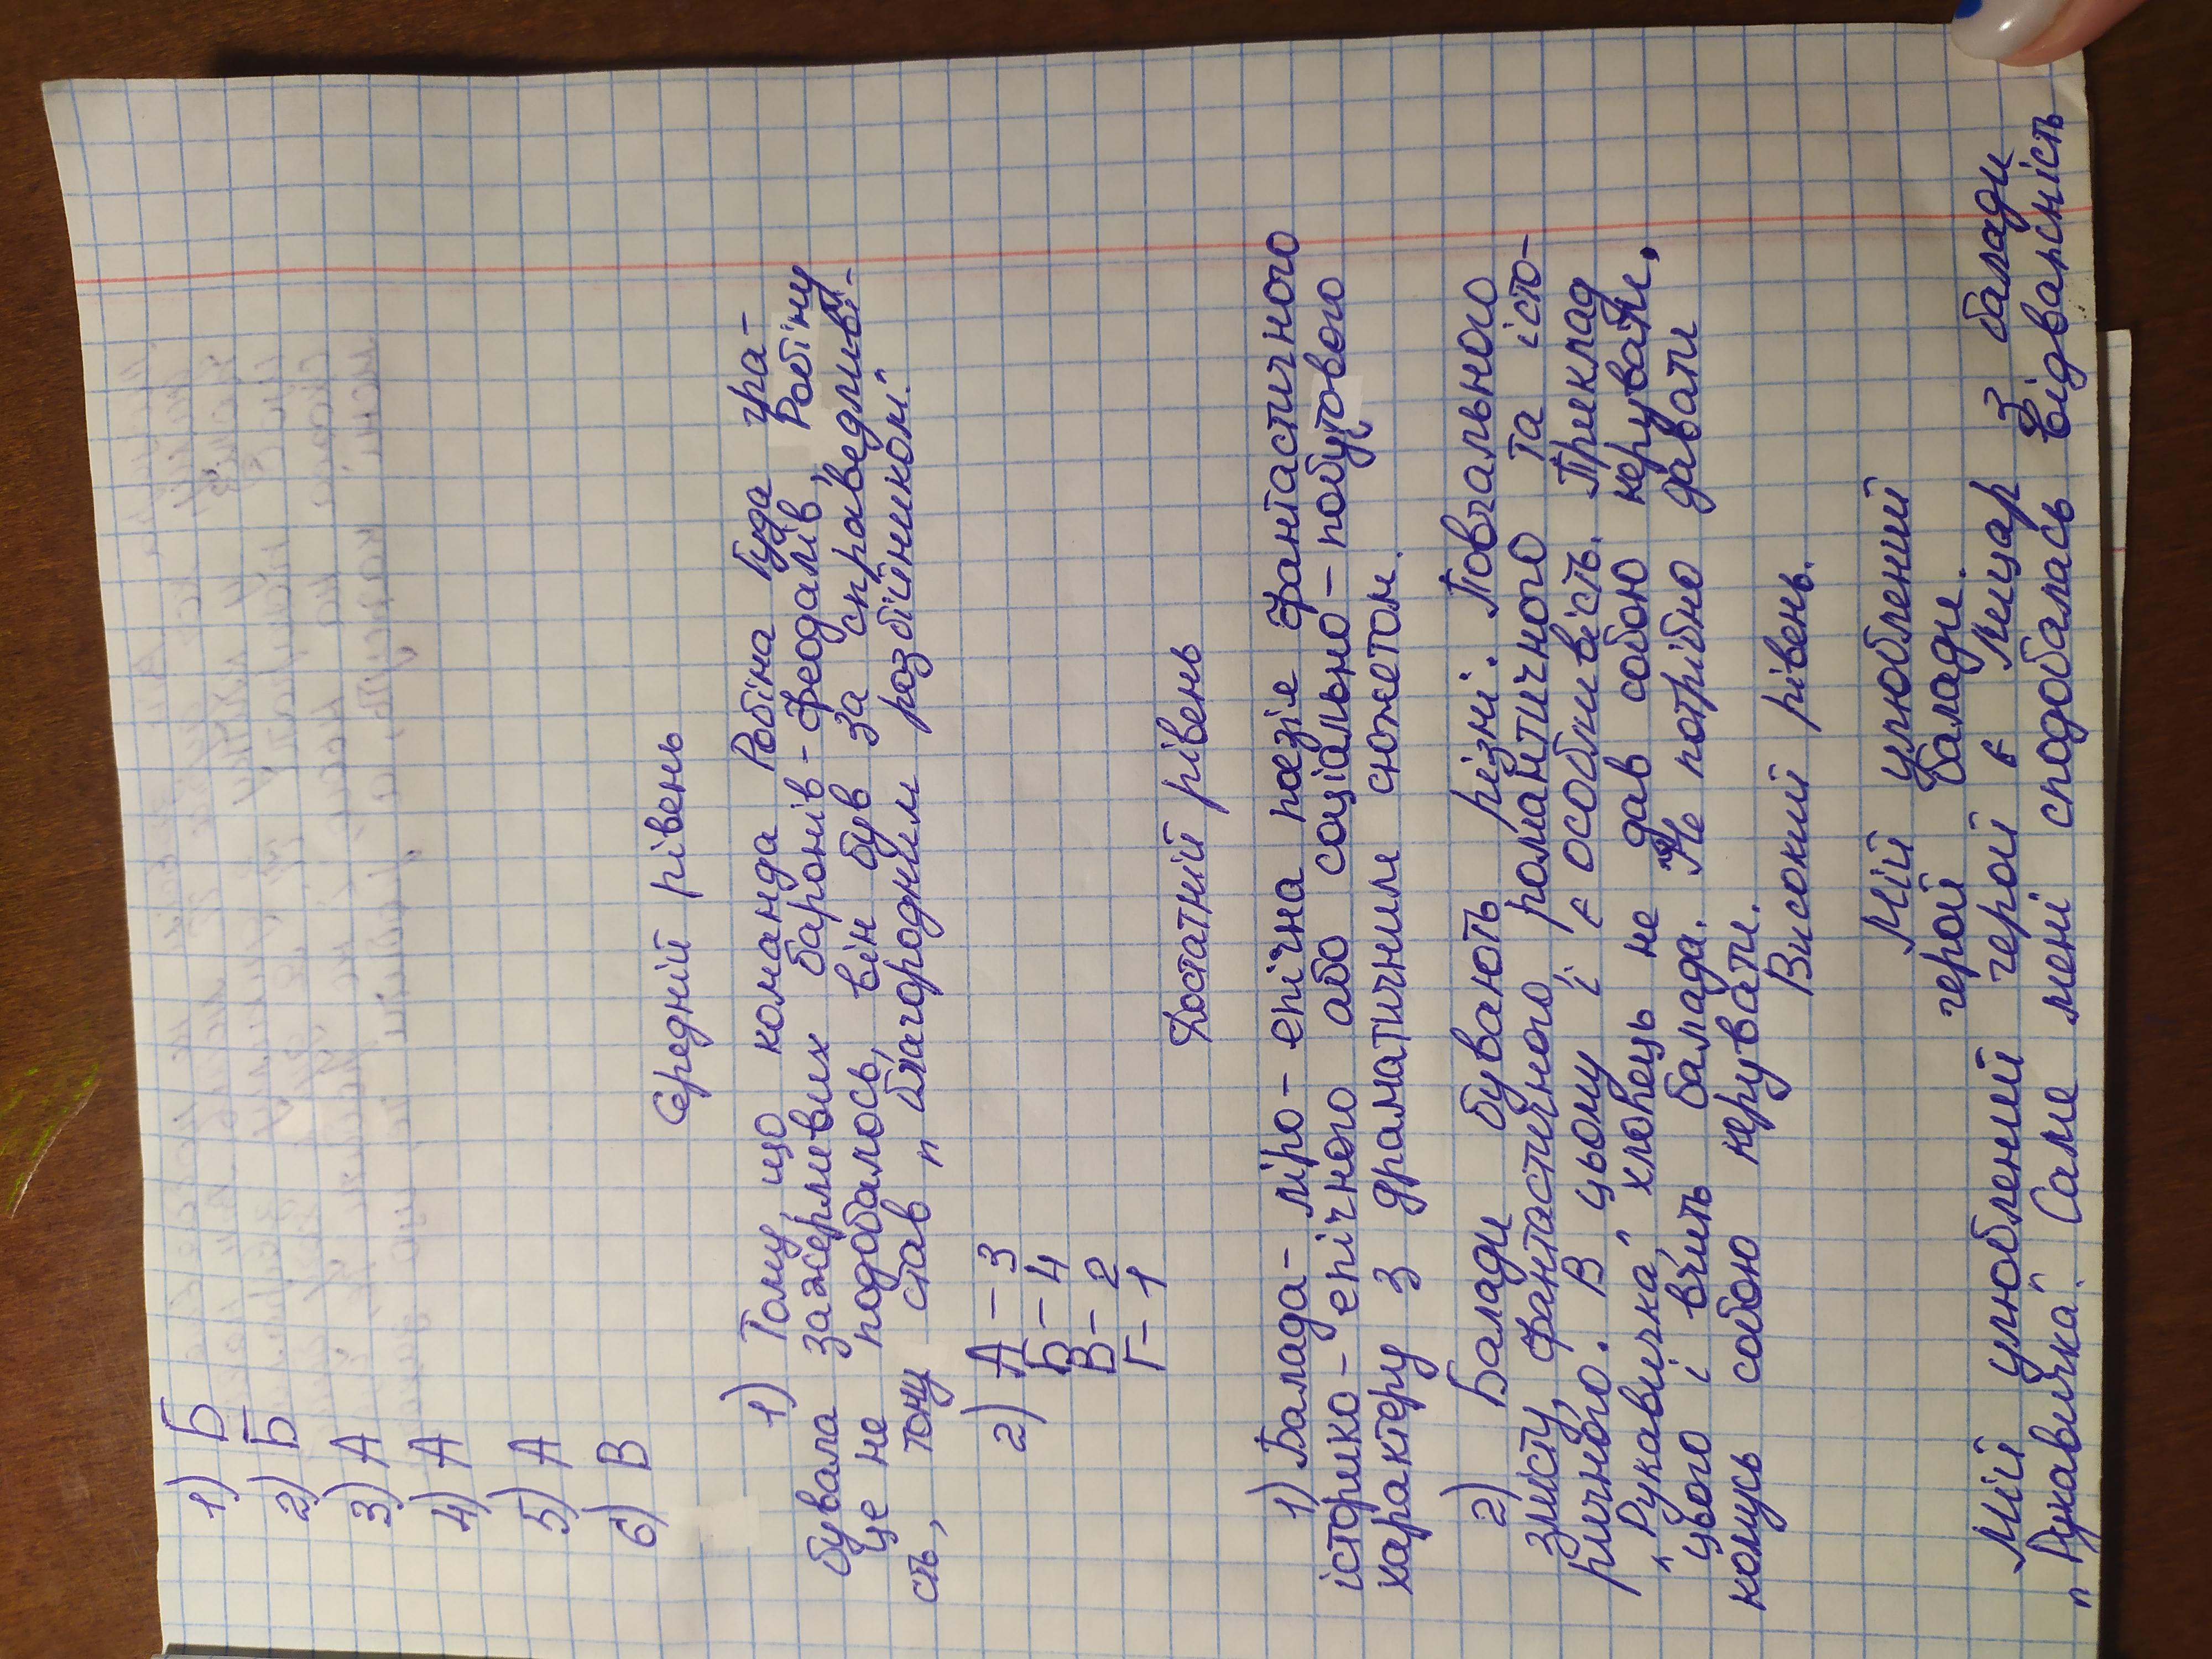 1) Б
2) Б
3) А
4) А
5) А
6) В
Середній рівень
1) Тому, що команда Робіна Гуда гра-
бувала зажерливих баронів-феодалів, Робіну
це не подобалось, він був за справедливі-
сть, тому став „благородним розбійником".
2) А – 3
Б – 4
В – 2
Г – 1
Достатній рівень
1) Балада – ліро-епічна поезія фантастичного
історико-епічного або соціально-побутового
характеру з драматичним сюжетом.
2) Балади бувають різні: Повчального
змісту, фантастичного романтичного таісто-
ричного. В цьому і є особливість. Приклад
„Рукавичка" хлопець не дав собою керувати,
цього і вчить балада. Не потрібно давати
комусь собою керувати.
Високий рівень.
Мій улюблений
герой балади.
Мій улюблений герой є Лицар з балади
„Рукавичка". Саме мені сподобалась відварність